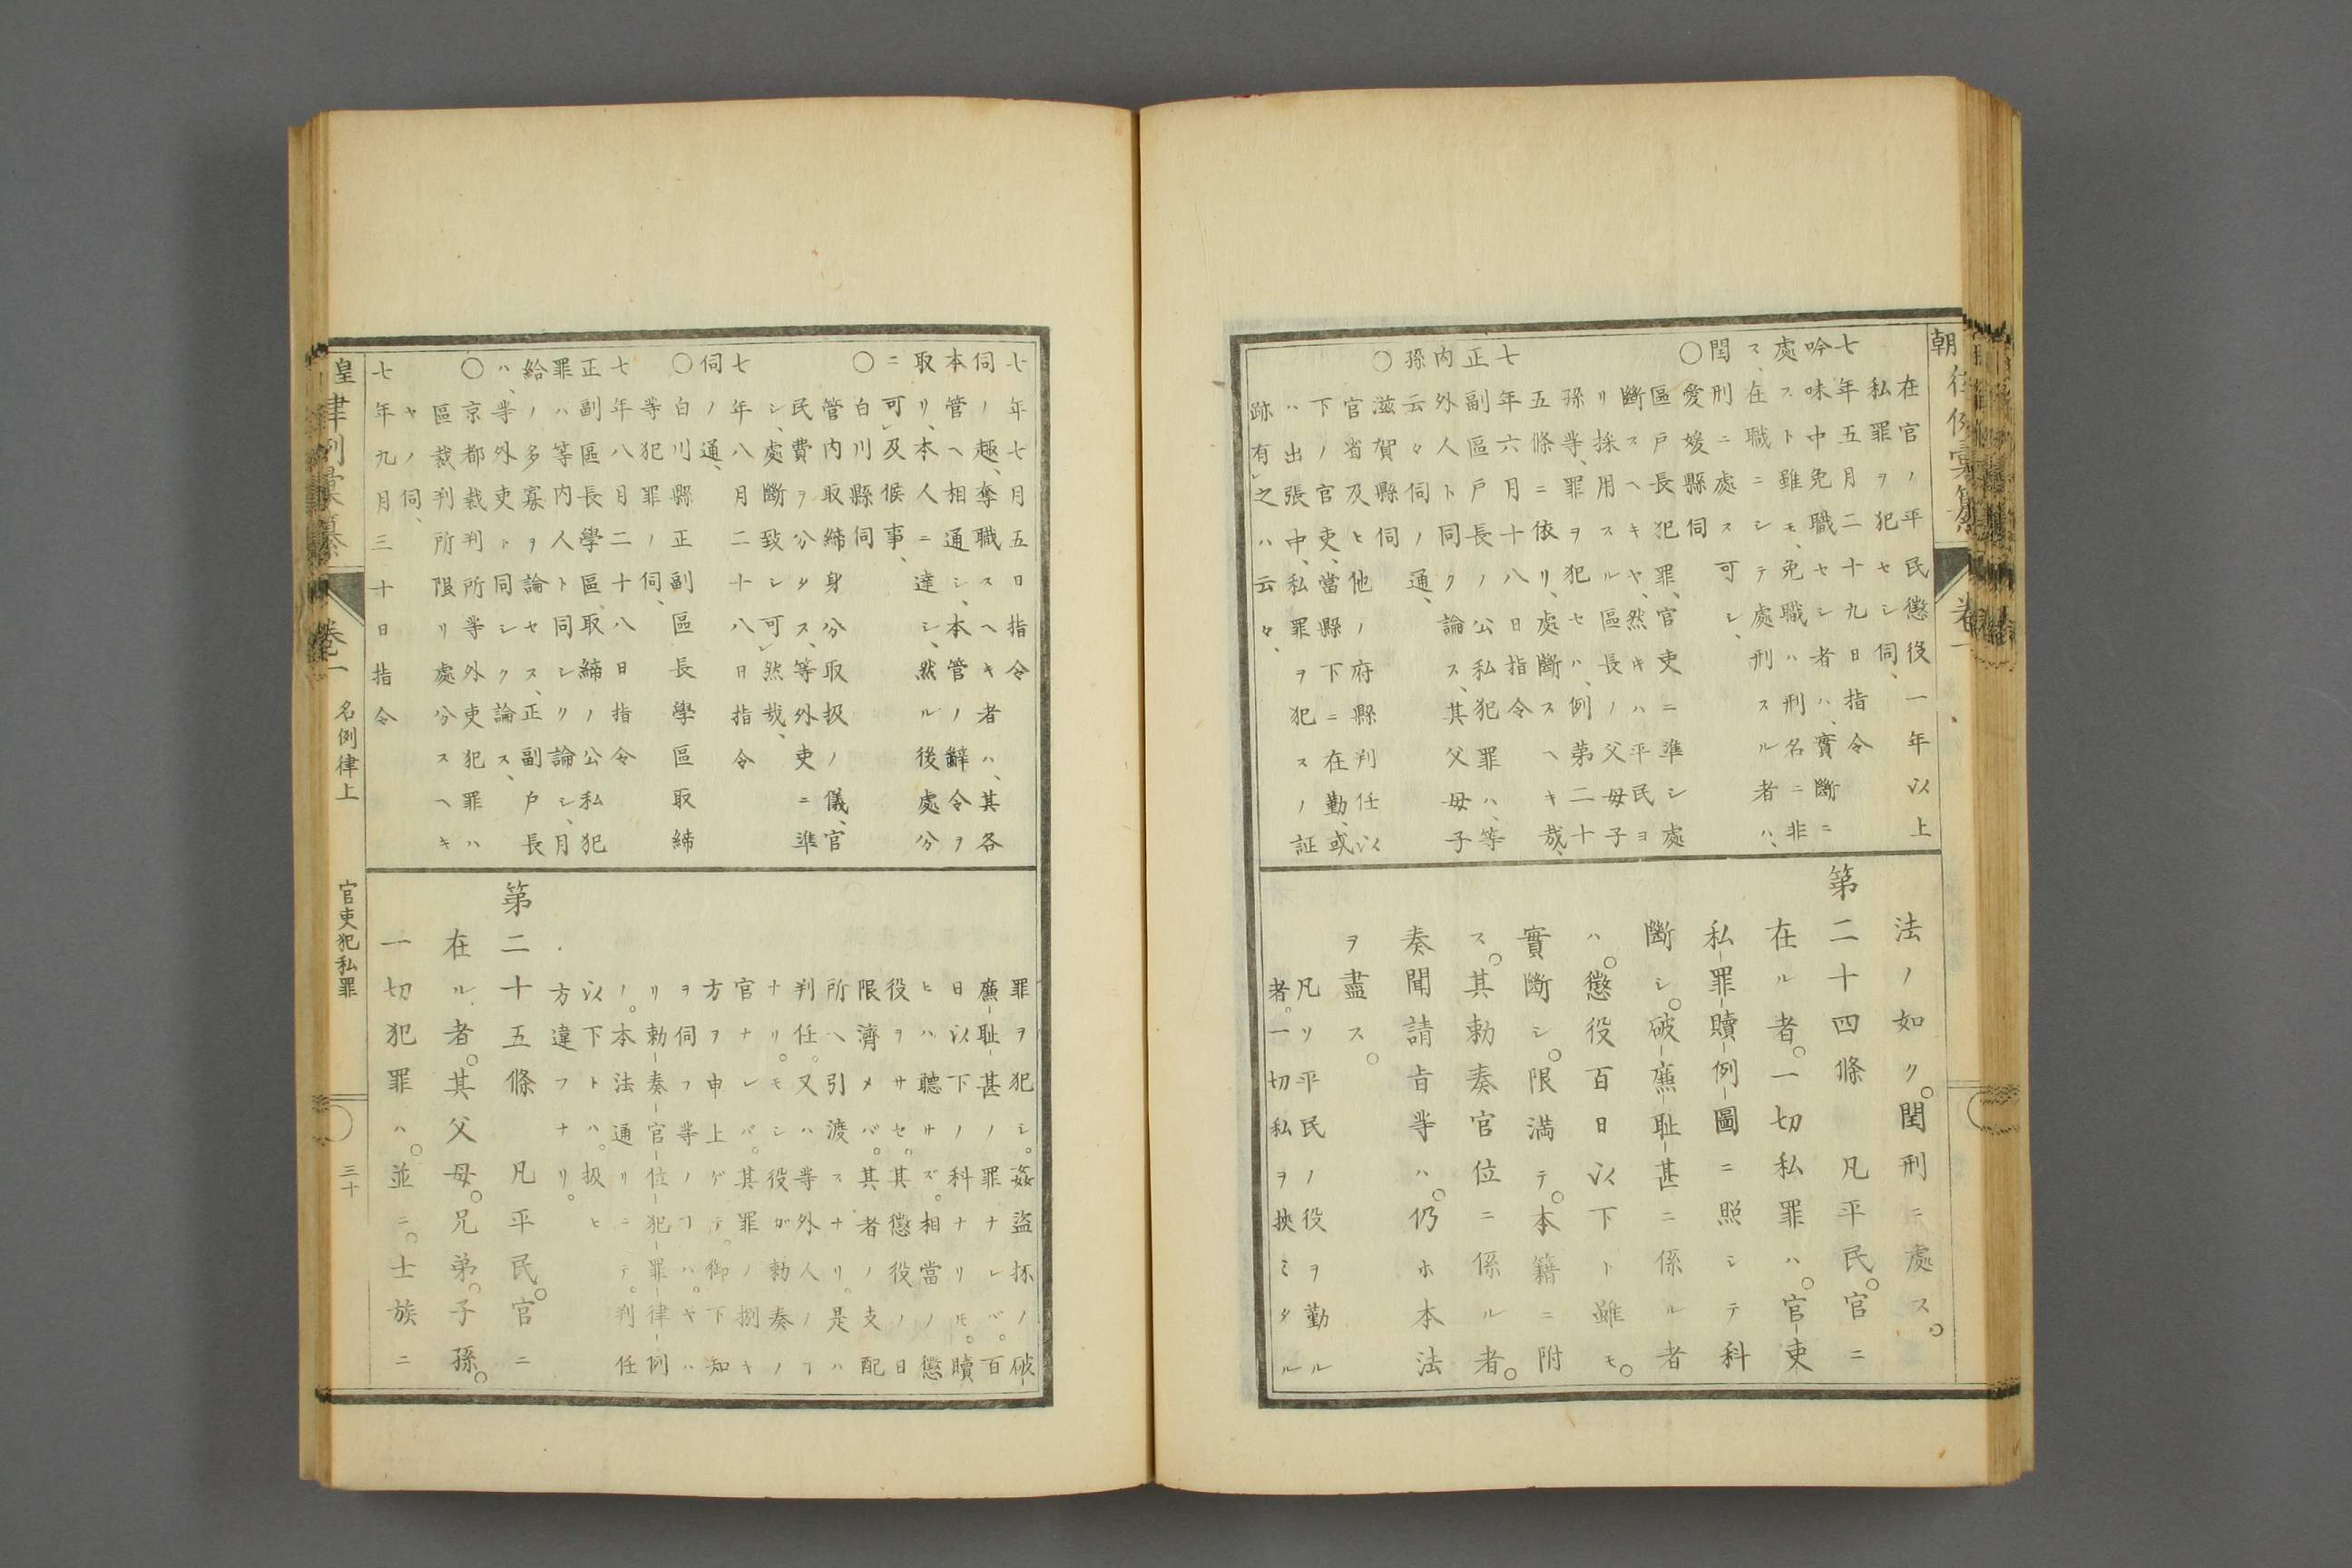 在官ノ平民懲役一年以上
私罪ヲ犯セシ伺、
七年五月二十九日指令
吟味中免職セシ者ハ、實斷ニ
處スト雖モ、免職ハ刑名ニ非
ス、在職ニシテ處刑スル者ハ、
閏刑ニ處ス可シ、
〇愛媛縣伺
區戸長犯罪、官吏ニ準シ處
斷スヘキヤ、然キハ平民ヨ
リ採用スル區長ノ父母子
孫等、罪ヲ犯セハ、例第二十
五條ニ依リ、處斷スヘキ哉、
七年六月十八日指令
正副區戸長ノ公私犯罪ハ、等
内外人ト同ク論ス、其父母子
孫云々伺ノ通、
〇滋賀縣伺
官省及ヒ他ノ府縣判任以
下ノ官吏、當縣下ニ在勤、或
ハ出張中、私罪ヲ犯スノ証
跡有レ之ハ云々、
法ノ如ク。閏刑ニ處ス。
第二十四條 凡平民。官ニ
在ル者。一切私罪ハ。官吏
私罪贖例圖ニ照シテ科
斷シ。破廉耻甚ニ係ル者
ハ。懲役百日以下ト雖モ。
實斷シ。限滿テ。本籍ニ附
ス。其勅奏官位ニ係ル者。
奏聞請旨等ハ。仍ホ本法
ヲ盡ス。
凡リ平民ノ役ヲ勤ル
者。一切私ヲ挾ミタル
七年七月五日指令
伺ノ趣、奪職スヘキ者ハ、其各
本管ヘ相通シ、本管ノ辭令ヲ
取リ、本人ニ達シ、然ル後處分
ニ可レ及候事、
〇白川縣伺
管内取締身分取扱ノ儀、官
民費ヲ分タス、等外吏ニ準
シ、處斷致シ可レ然哉、
七年八月二十八日指令
伺ノ通、
〇白川縣正副區長學區取締
等犯罪ノ伺、
七年八月二十八日指令
正副區長學區取締ノ公私犯
罪ハ等内人ト同シク論シ、月
給ノ多寡ヲ論セス、正副戸長
ハ、等外吏ト同シク論ス、
〇京都裁判所等外吏犯罪ハ
區裁判所限リ處分スヘキ
ヤノ伺、
七年九月三十日指令
罪ヲ犯シ。姦盜抔ノ破
廉耻甚ノ罪ナレバ。百
日以下ノ科ナリ𪜈。贖
ヒハ聽サズ。相當ノ懲
役ヲサセ。其懲役ノ日
限濟メバ。其者ノ支配
所ヘ引渡スナリ。是ハ
判任。又ハ等外人ノヿ
ナリ。モシ役ガ勅奏ノ
官ナレバ。其罪ノ捌キ
方ヲ申上ゲテ。御下知
ヲ伺フ等ノヿハ。ヤハ
リ勅奏官位犯罪律例
ノ。本法通リニテ。判任
以下トハ。扱ヒ
方違フナリ。
第二十五條 凡平民。官ニ
在ル者。其父母。兄弟。子孫。
一切犯罪ハ。並ニ。士族ニ
皇律例彙纂 卷一 名例律上 官吏犯私罪 三十